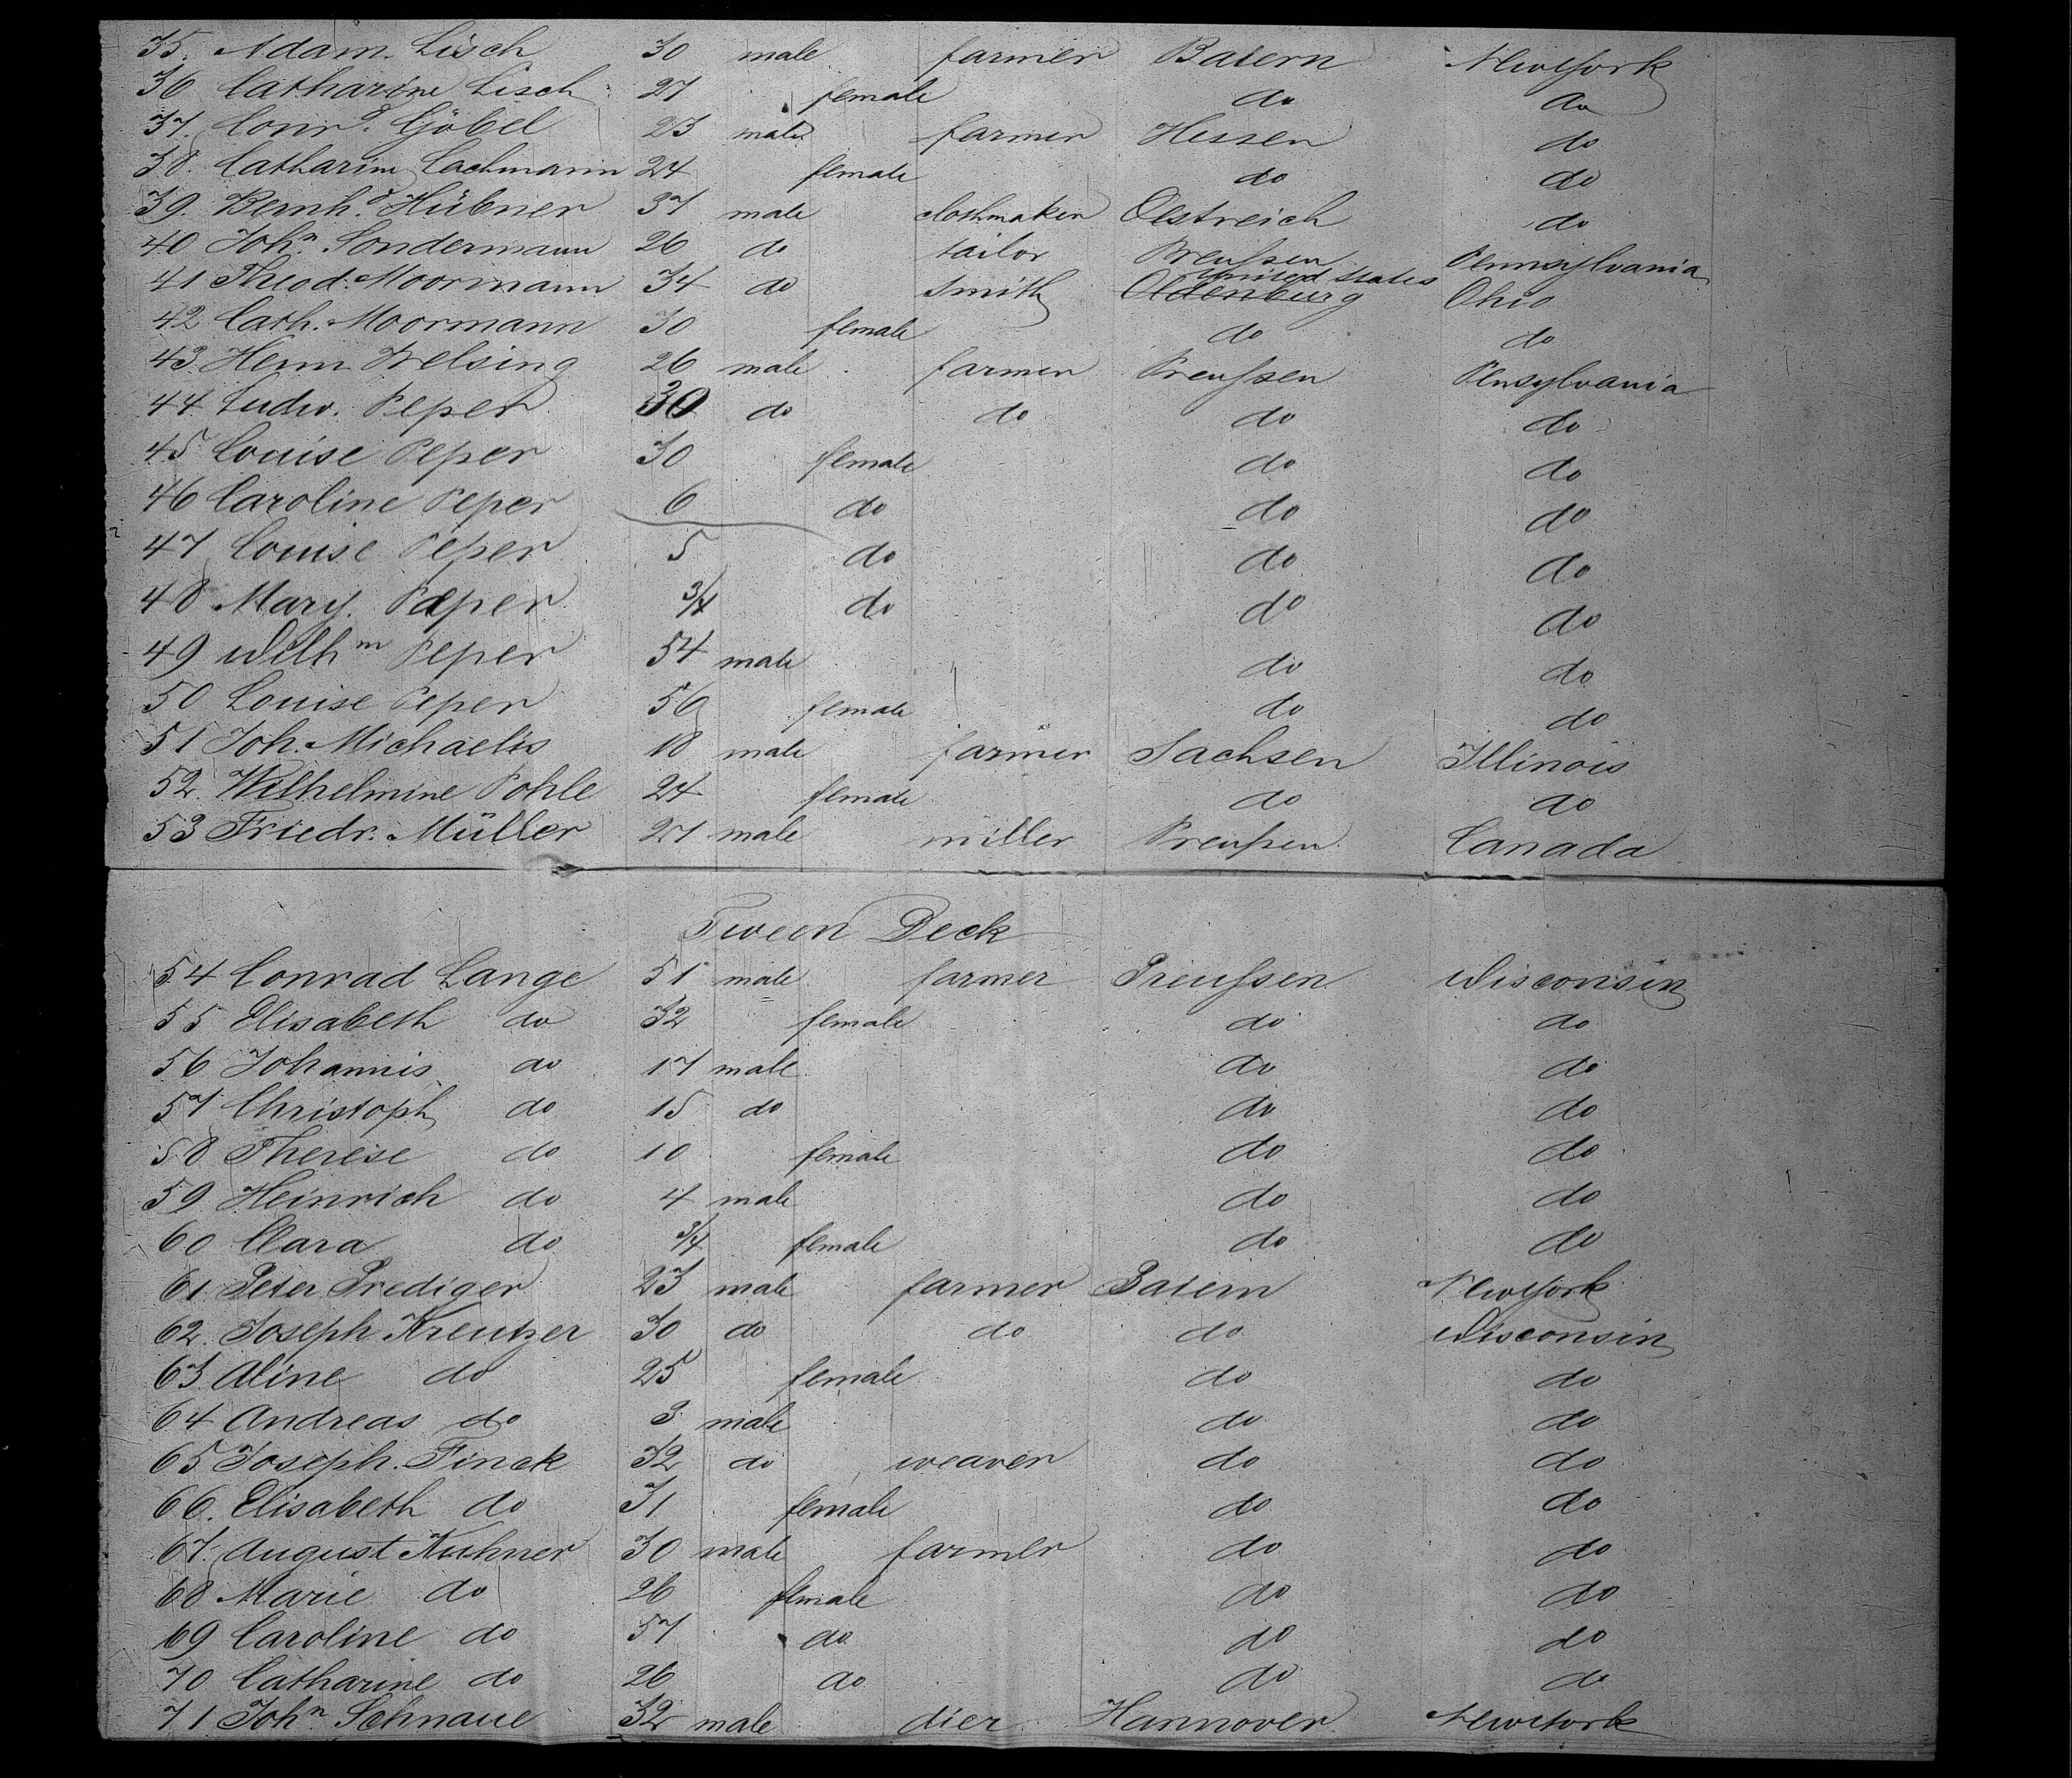 35. Adam Lisch 30 male farmer Baiern NewYork
36 Catharine Lisch 27 female do do
37. Conrd. Göbel 23 male farmer Hessen do
38. Catharine Lachmann 24 female do do
39. Bernhd. Hübner 37 male clothmaker Oestreich do
40 John. Sondermann 26 do tailor Preußen Pennsylvania
United States
41 Theod. Moormann 34 do smith Oldenburg Ohio
42 Cath. Moormann 30 female do do
43 Herm. Welsing 26 male farmer Preußen Pensylvania
44 Ludw. Peper 30 do do do do
45 Louise Peper 30 female do do
46 Caroline Peper 6 do do do
47 Louise Peper 5 do do do
48 Mary Peper 3/4 do do do
49 Wilhm Peper 54 male do do
50 Louise Peper 56 female do do
51 Joh. Michaelis 18 male farmer Sachsen Illinois
52. Wilhelmine Pohle 24 female do do
53 Friedr. Müller 27 male miller Preußen Canada
Tween Deck
54 Conrad Lange 51 male farmer Preußen Wisconsin
55 Elisabeth do 32 female do do
56 Johannis do 17 male do do
57 Christoph do 15 do do do
58 Therese do 10 female do do
59 Heinrich do 4 male do do
60 Clara do 3/4 female do do
61 Peter Prediger 23 male farmer Baiern NewYork
62. Joseph Kreutzer 30 do do do Wisconsin
63 Aline do 25 female do do
64 Andreas do 3 male do do
65 Joseph Finck 32 do weaver do do
66. Elisabeth do 31 female do do
67. August Kuhner 30 male farmer do do
68 Marie do 26 female do do
69 Caroline do 57 do do do
70 Catharine do 26 do do do
71 John Schnaue 32 male dier Hannover NewYork